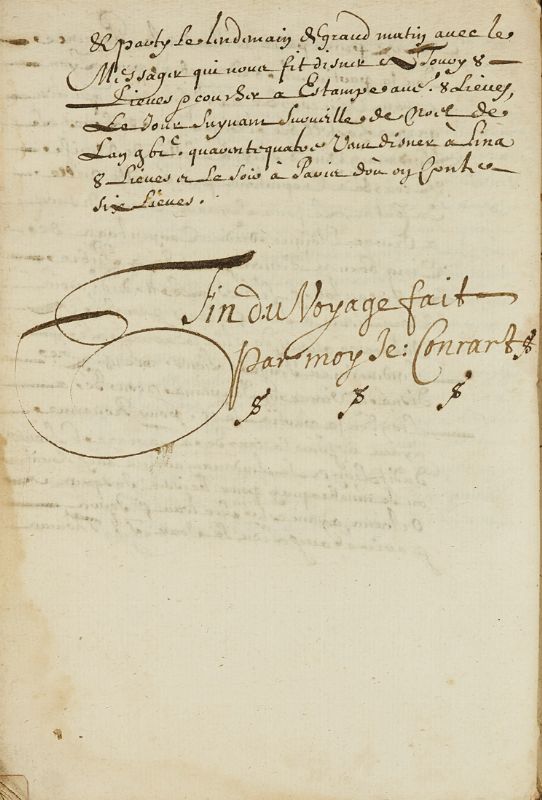 & party le lendemain de grand matin avec le
Messager qui nous fit disner a Toury 8
Lieues & coucher a Estampe auec 8 Lieues,
Le Jour suyuant surveille de Noel de
Lan quarentequatre Vins disner à Lina
8 Lieues & Le soir à Paris dou on Conte
six Lieues.
Fin du Voyage fait
par moy Je: Conrart